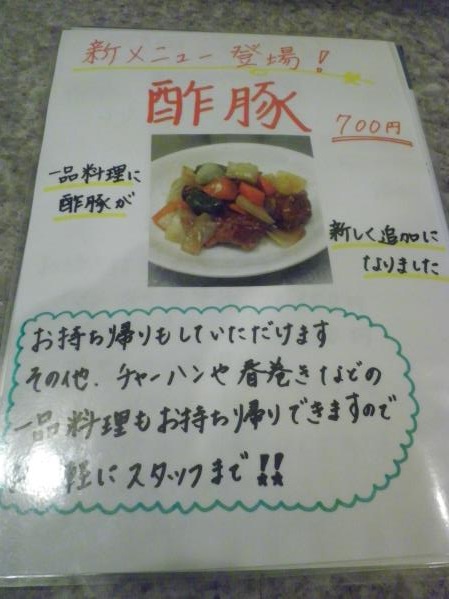 新メニュー登場!
酢豚
700円
一品料理に
酢豚が
新しく追加に
なりました
お持ち帰りもしていただけます
その他、チャーハンや春巻きなどの
一品料理もお持ち帰りできますので
軽にスタッフまで!!